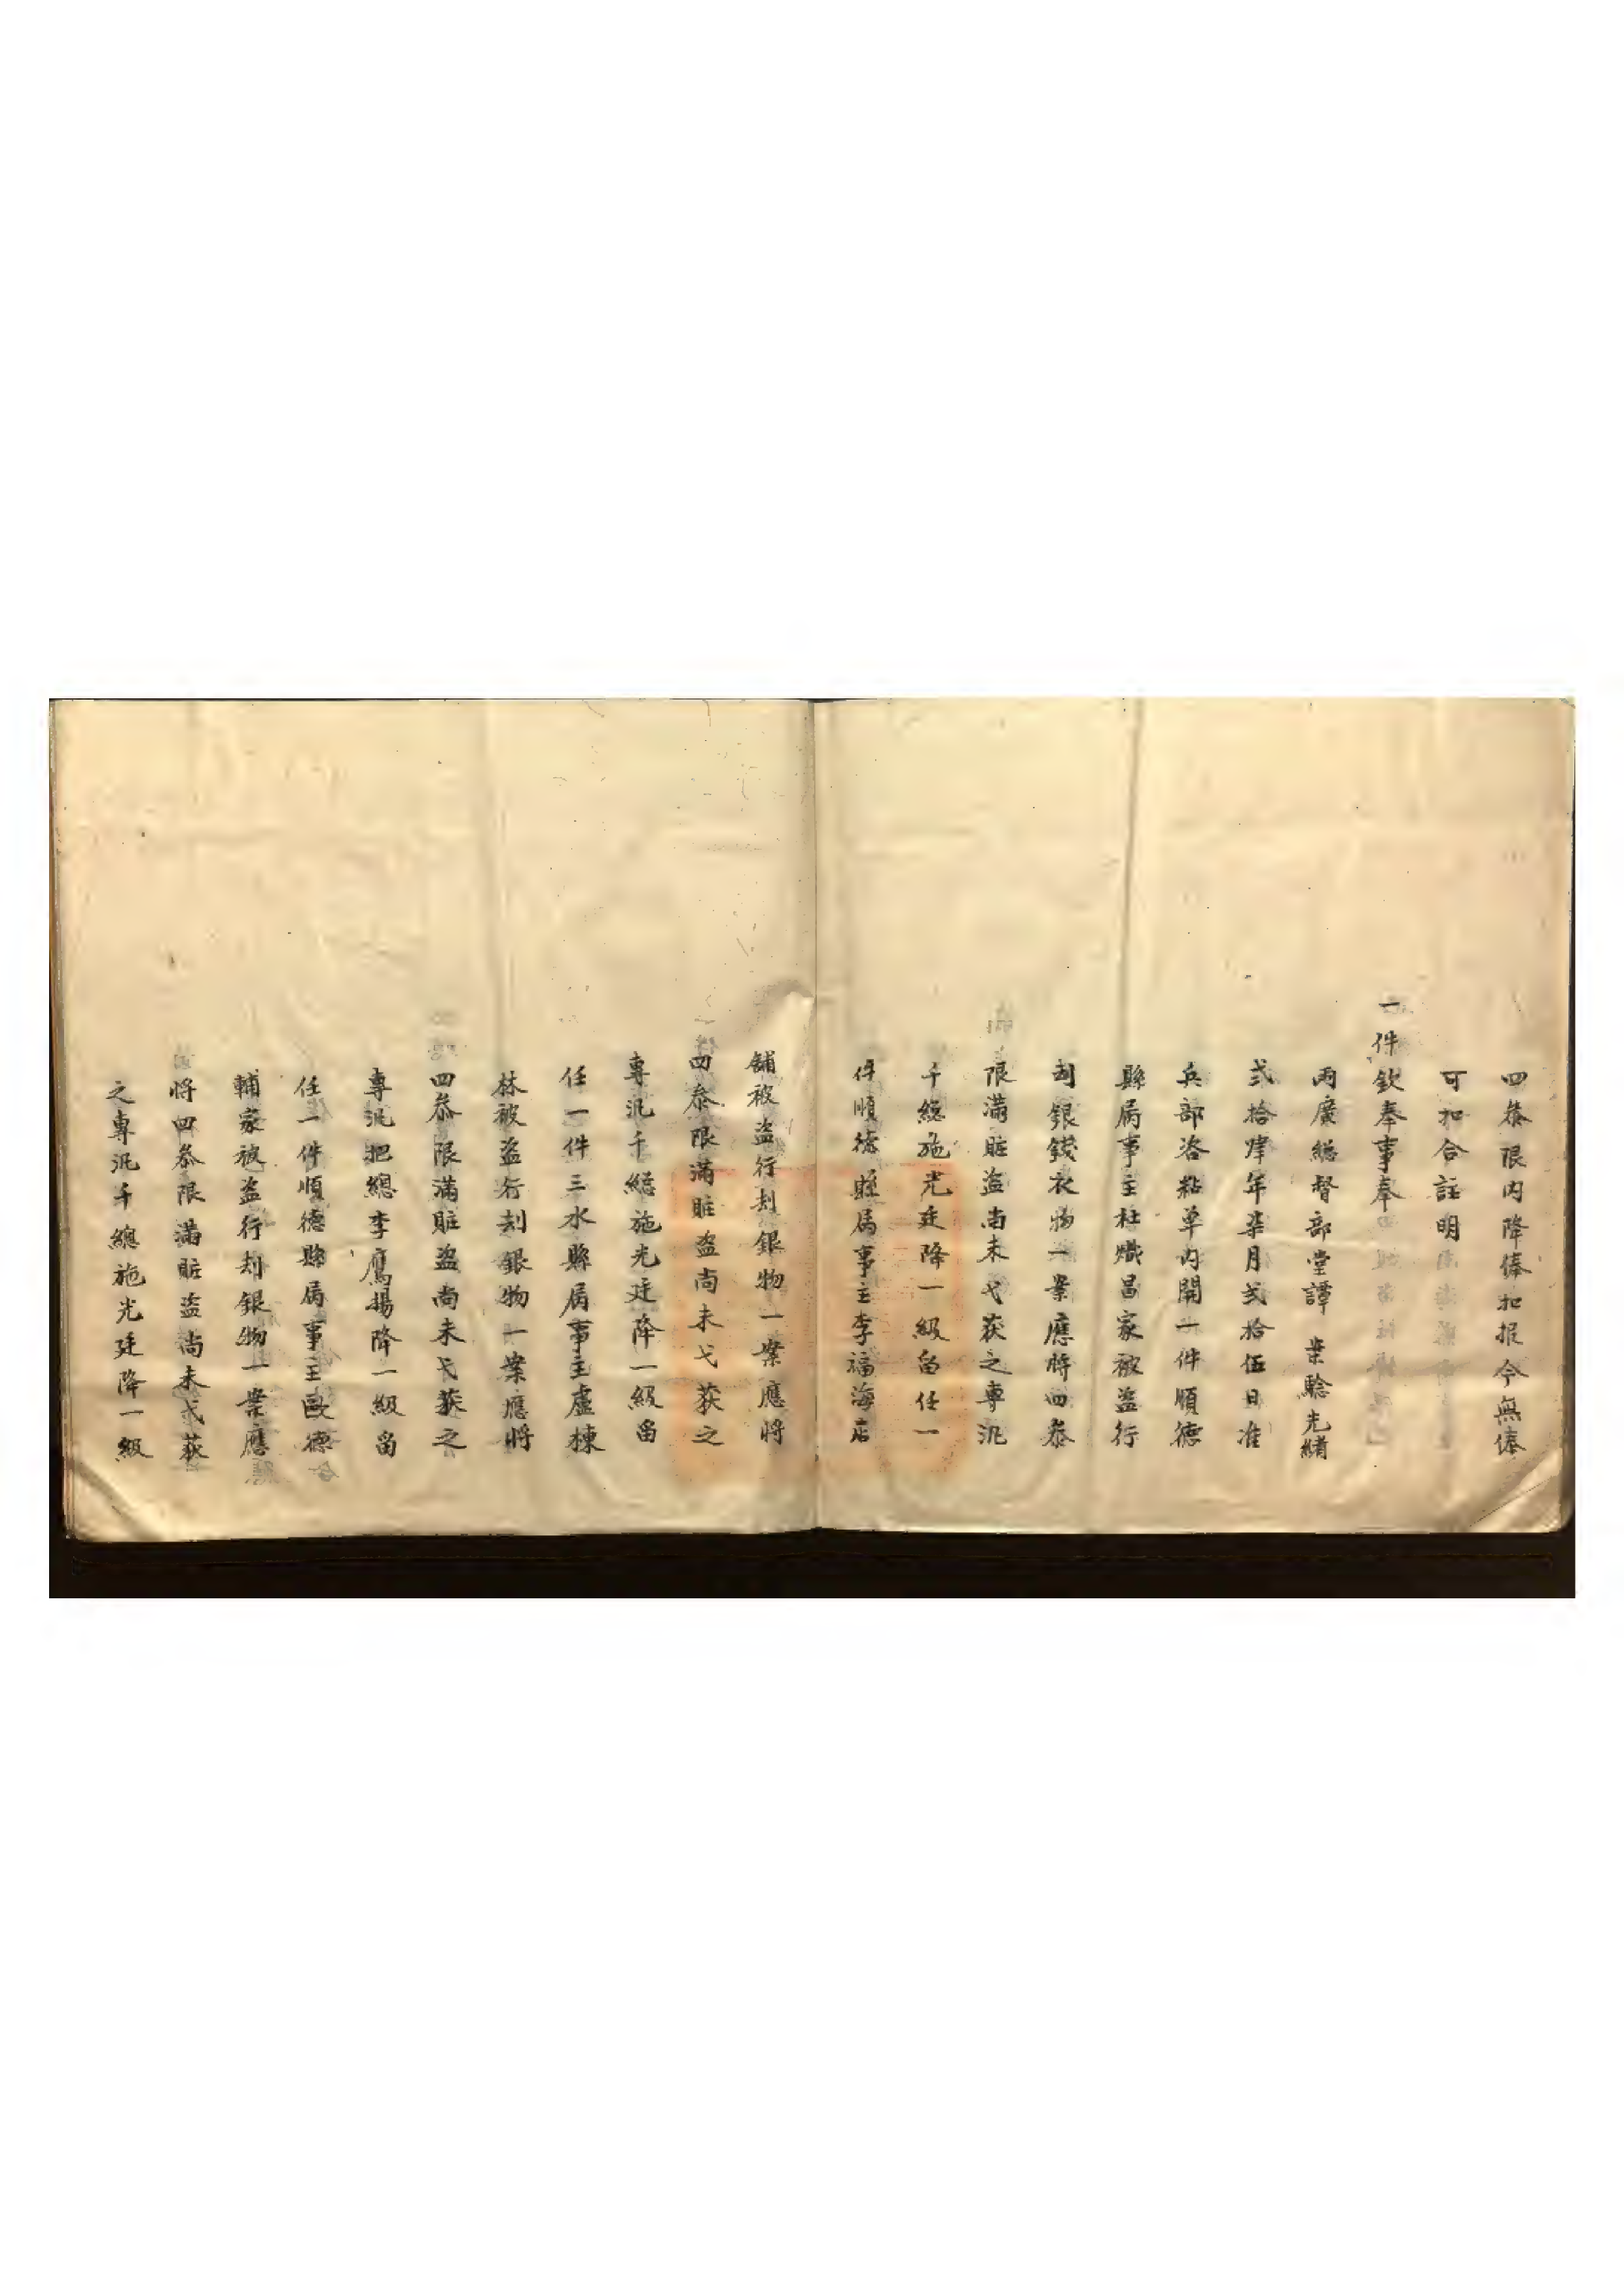 四叅限内降俸扣报今無俸
可扣合註明
一件欽奉事奉
兩廣総督部堂譚 案驗光緒
弍拾肆年柒月弍拾伍日准
兵部咨粘单内開一件順德
縣属事主杜熾昌家被盗行
刦銀錢衣物一案應將四叅
限滿賍盗尚未弋获之專汛
千総施光廷降一級畄任一
件順德縣属事主李福海店
舖被盗行刦銀物一案應將
四叅限滿賍盗尚未弋获之
專汛千総施光廷降一級畄
任一件三水縣属事主盧棟
林被盗行刦銀物一案應將
四叅限滿賍盗尚未弋获之
專汛把總李鷹揚降一級畄
任一件順德縣属事主歐德
輔家被盗行刦銀物一案應
將四叅限滿賍盗尚未弋获
之專汛千總施光廷降一級